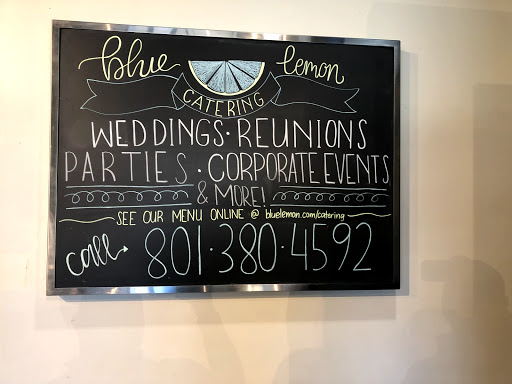 blue lemon
CATERING
WEDDINGS · REUNIONS
PARTIES · CORPORATE EVENTS
& MORE!
SEE OUR MENU ONLINE @ bluelemon.com/catering
call → 801·380·4592